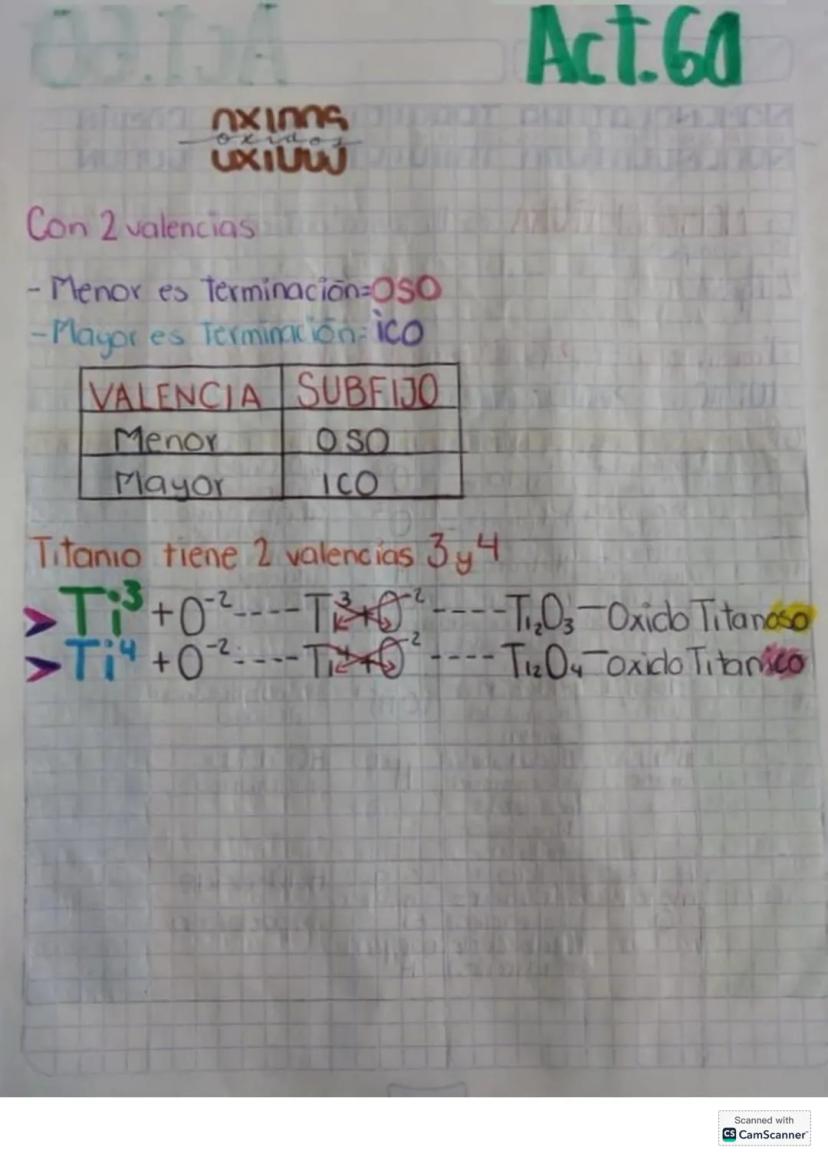 Act.60
oxidos
Con 2 valencias
- Menor es terminación=oso
- Mayor es terminación=ico
VALENCIA SUBFIJO
Menor OSO
Mayor ICO
Titanio tiene 2 valencias 3 y 4
> Ti³ + O⁻² ---- Ti³ + O⁻² ---- Ti₂O₃ — Oxido Titanoso
> Ti⁴ + O⁻² ---- Ti⁴ + O⁻² ---- Ti₂O₄ — oxido Titanico
Scanned with
CS CamScanner